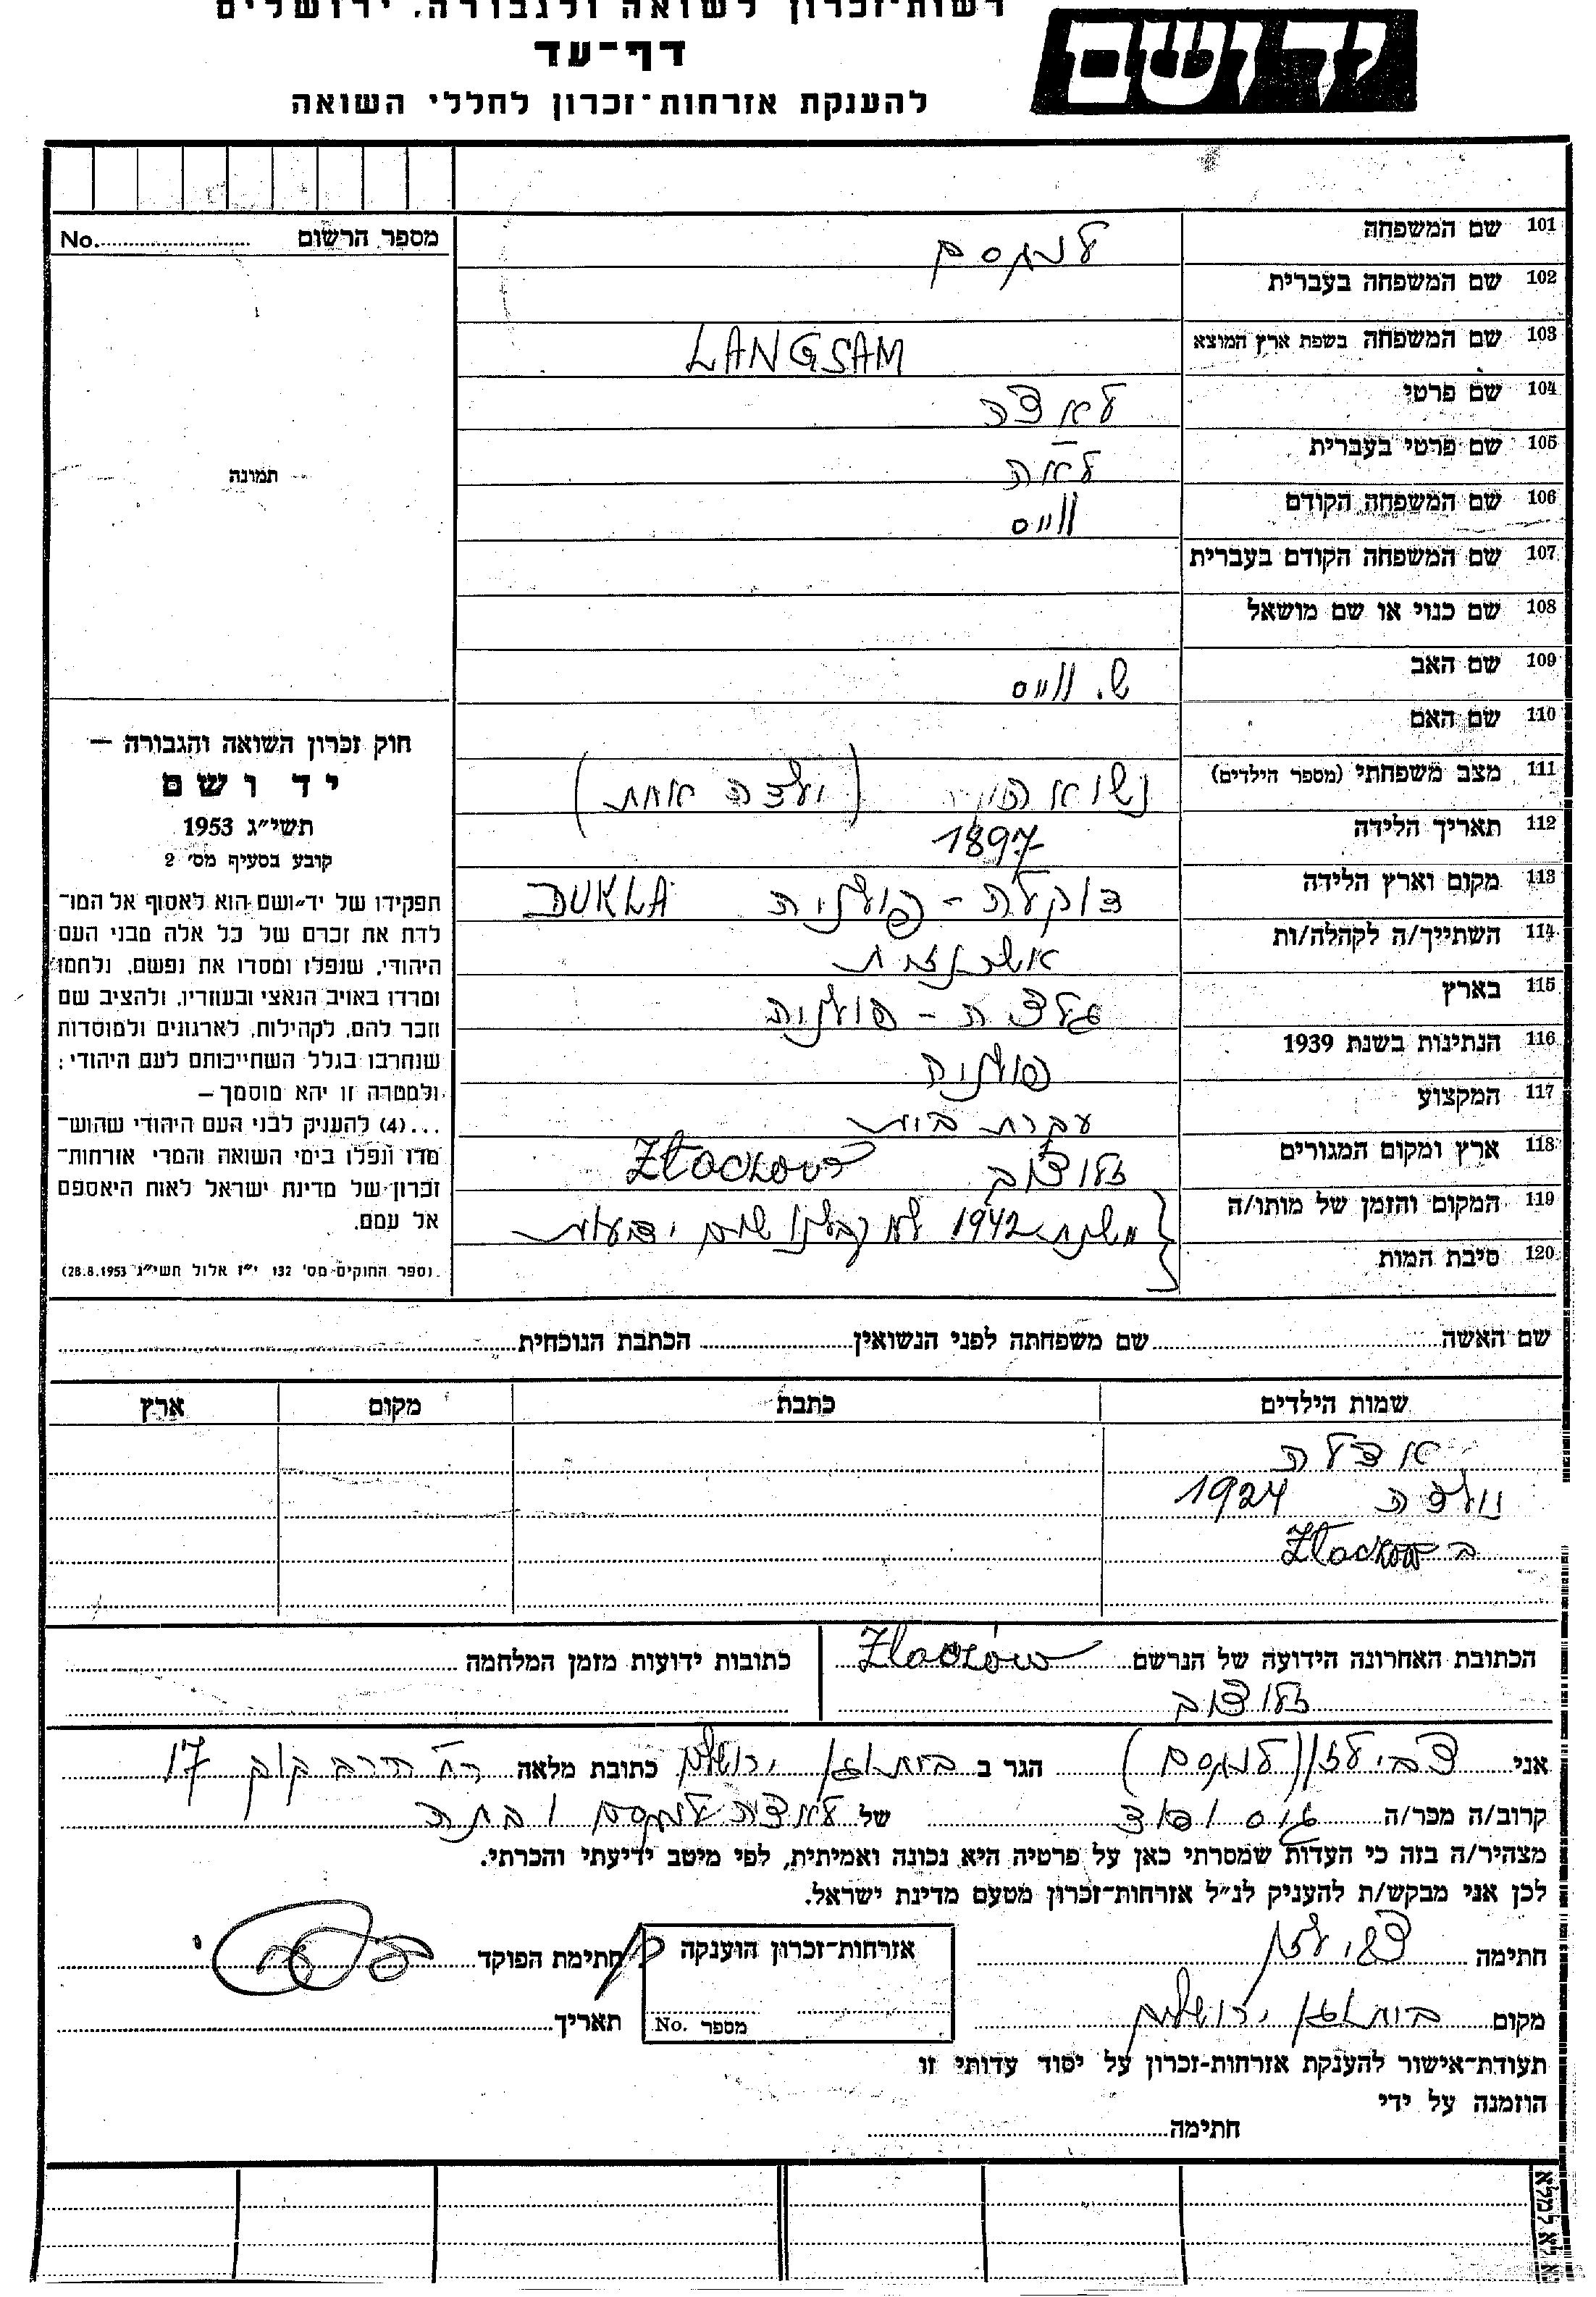 רשות-זכרון לשואה ולגבורה, ירושלים
דף-עד
להענקת אזרחות-זכרון לחללי השואה
ידושם
מספר הרשום No.
תמונה
101 שם המשפחה לנגסם
102 שם המשפחה בעברית
103 שם המשפחה בשפת ארץ המוצא LANGSAM
104 שם פרטי
105 שם פרטי בעברית לאה
106 שם המשפחה הקודם ווייס
107 שם המשפחה הקודם בעברית
108 שם כנוי או שם מושאל
109 שם האב ש. ווייס
110 שם האם
111 מצב משפחתי (מספר הילדים) נשואה (ילדה אחת)
112 תאריך הלידה 1897
113 מקום וארץ הלידה דוקלה - פולניה DUKLA
114 השתייך/ה לקהלה/ות אשכנזית
115 בארץ גליציה - פולניה
116 הנתינות בשנת 1939 פולניה
117 המקצוע עקרת בית
118 ארץ ומקום המגורים זלוצוב Złoczów
119 המקום והזמן של מותו/ה משנת 1942 לא קבלנו שום ידיעות
120 סיבת המות
חוק זכרון השואה והגבורה —
יד ושם
תשי״ג 1953
קובע בסעיף מס׳ 2
תפקידו של יד-ושם הוא לאסוף אל המו־
לדת את זכרם של כל אלה מבני העם
היהודי, שנפלו ומסרו את נפשם, נלחמו
ומרדו באויב הנאצי ובעוזריו, ולהציב שם
וזכר להם, לקהילות, לארגונים ולמוסדות
שנחרבו בגלל השתייכותם לעם היהודי;
ולמטרה זו יהא מוסמך —
...(4) להעניק לבני העם היהודי שהוש־
מדו ונפלו בימי השואה והמרי אזרחות־
זכרון של מדינת ישראל לאות היאספם
אל עמם.
(ספר החוקים מס׳ 132 י״ז אלול תשי״ג 28.8.1953)
שם האשה שם משפחתה לפני הנשואין הכתבת הנוכחית
שמות הילדים כתבת מקום ארץ
אדלה
נולדה 1924
ב Złoczów
הכתובת האחרונה הידועה של הנרשם Złoczów
זלוצוב
כתובות ידועות מזמן המלחמה
אני צבי לזן (לנגסם) הגר ב בית וגן ירושלים כתובת מלאה רח׳ הרב קוק 17
קרוב/ה מכר/ה של לנגסם ובתה
מצהיר/ה בזה כי העדות שמסרתי כאן על פרטיה היא נכונה ואמיתית, לפי מיטב ידיעתי והכרתי.
לכן אני מבקש/ת להעניק לנ״ל אזרחות־זכרון מטעם מדינת ישראל.
חתימה צבי לזן
אזרחות־זכרון הוענקה
מספר No.
חתימת הפוקד
מקום בית וגן ירושלים
תאריך
תעודת־אישור להענקת אזרחות-זכרון על יסוד עדותי זו
הוזמנה על ידי
חתימה
נא לא למלא